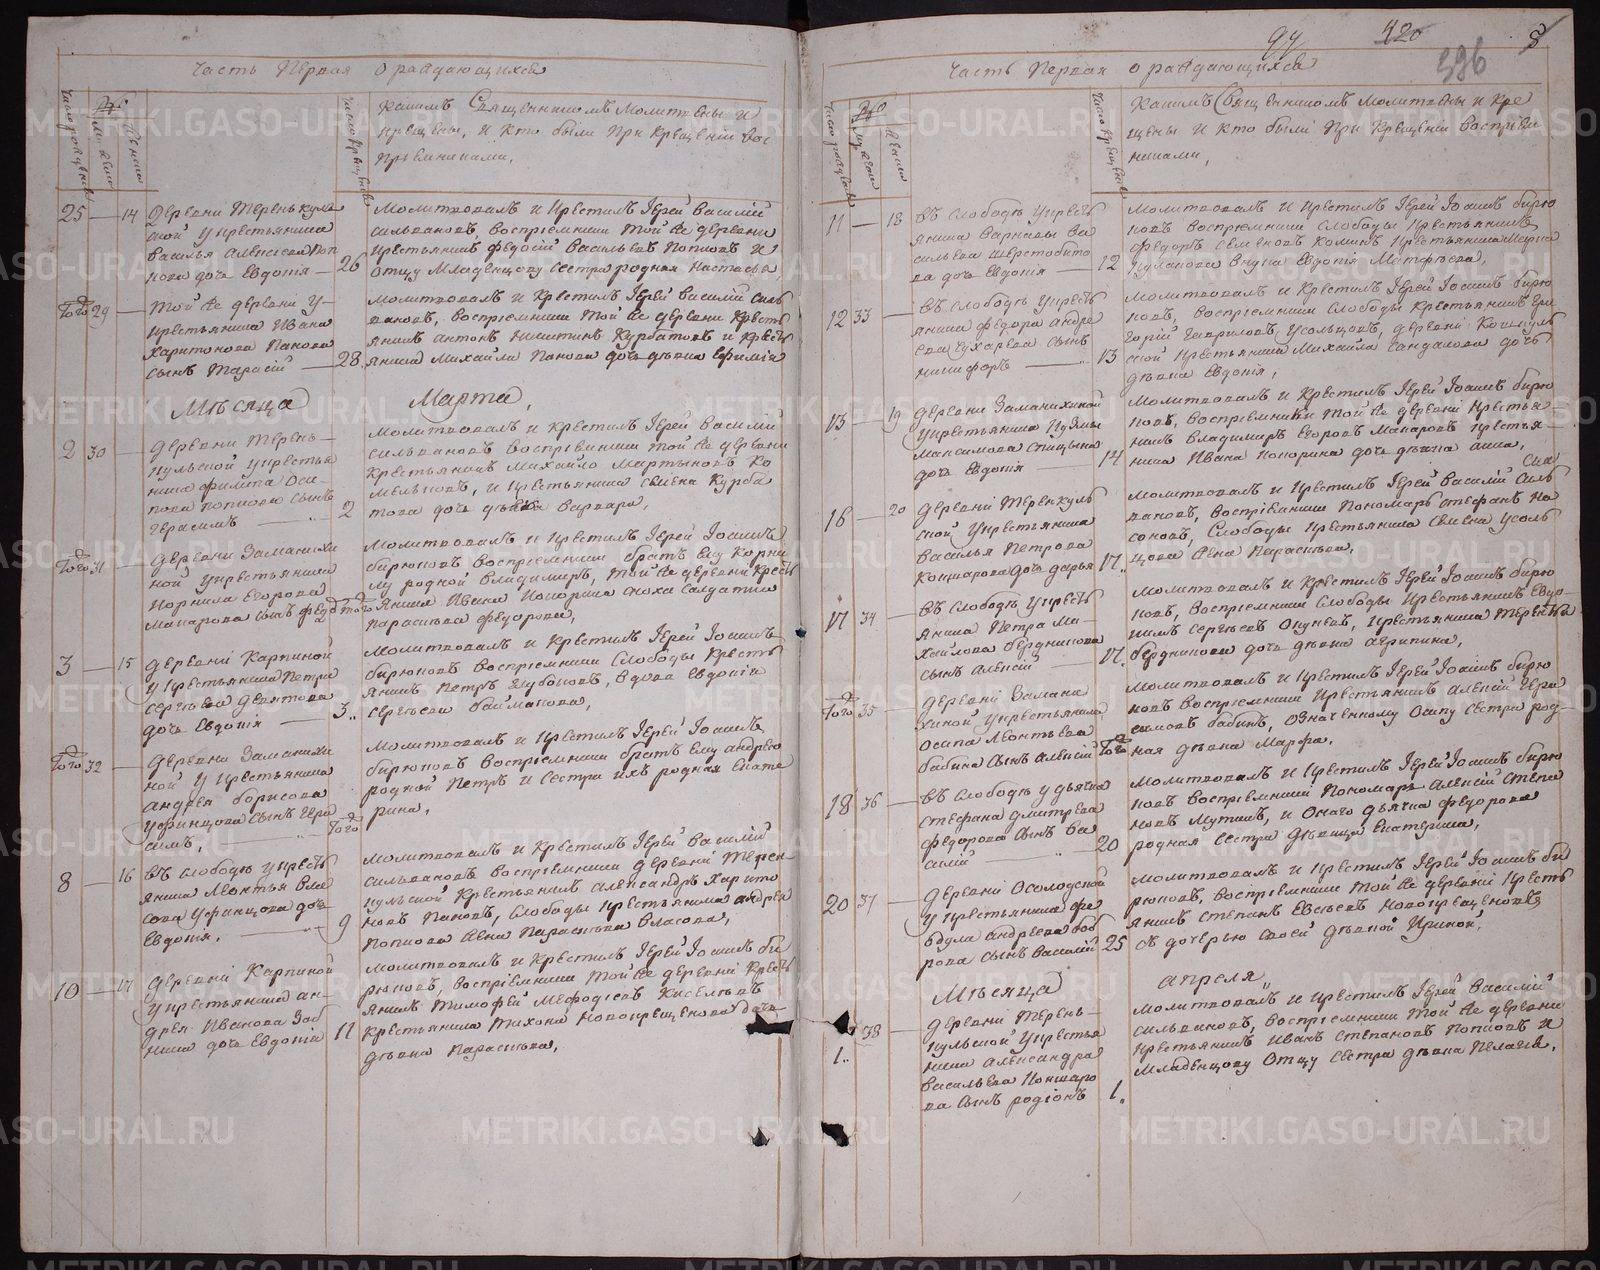 Часть Первая о раждающихся
Число рождения
№
Женска
Число крещения
Какимъ Священникомъ Молитвены и
крещены, и кто были при крещеніи вос
пріемниками,
25 — 14 Деревни Теренькуль
ской у крестьянина
Василья Алексеева Поп
кова дочь Евдокія — 26
Молитвовалъ и крестилъ Іерей Василій
Сильвановъ, воспріемники той же деревни
крестьянинъ Федосій Васильевъ Попковъ и
отцу младенцеву сестра родная Настасья
Того 29 — Той же деревни у
крестьянина Ивана
Харитонова Панова
сынъ Тарасій — 28
Молитвовалъ и крестилъ Іерей Василій Силь
вановъ, воспріемники той же деревни кресть
янинъ Антонъ Никитинъ Курбатовъ и кресть
янина Михайла Панова дочь девка Ефимія
Месяца Марта,
2 30 — Деревни Терень-
кульской у крестья
нина Филипа Оси-
пова Попкова сынъ
Герасимъ — 2
Молитвовалъ и крестилъ Іерей Василій
Сильвановъ воспріемники той же деревни
крестьянинъ Михайло Мартыновъ Ко
мельковъ, и крестьянина Семена Курба
това дочь девка Варвара,
Того 31 — Деревни Заманихи
ной у крестьянина
Корнила Егорова
Макарова сынъ Федотъ того
Молитвовалъ и крестилъ Іерей Іоаннъ
Бирюковъ воспріемники братъ ему Корни
лу родной Владимиръ, той же деревни кресть
янина Ивана Кокорина сноха солдатка
Парасковья Федорова,
3 — 15 Деревни Карпиной
у крестьянина Петра
Сергеева Девяткова
дочь Евдокія — 3
Молитвовалъ и крестилъ Іерей Іоаннъ
Бирюковъ воспріемники Слободы кресть
янинъ Петръ Зубоновъ, вдова Евдокія
Сергеева Баймакова,
Того 32 — Деревни Заманихи
ной у крестьянина
Андрея Борисова
Уфинцова сынъ Гера
симъ, того
Молитвовалъ и крестилъ Іерей Іоаннъ
Бирюковъ воспріемники братъ ему Андрею
родной Петръ и сестра ихъ родная Екате
рина,
8 — 16 Въ Слободе у кресть
янина Леонтья Вла
сова Уфинцова дочь
Евдокія. — 9
Молитвовалъ и крестилъ Іерей Василій
Сильвановъ воспріемники деревни Терен-
кульской крестьянинъ Александръ Харито
новъ Пановъ, Слободы крестьянина Андрея
Попкова жена Парасковья Власова,
10 — 17 Деревни Карпиной
у крестьянина Ан-
дрея Иванова Заб
нина дочь Евдокія 11
Молитвовалъ и крестилъ Іерей Іоаннъ Би
рюковъ, воспріемники той же деревни кресть
янинъ Тимофей Мефодіевъ Киселевъ
крестьянина Тихона Новокрещенова дочь
девка Парасковья,
94 420 8
396
Часть Первая о раждающихся
Число рождения
№
Женска
Число крещения
Какимъ Священникомъ молитвены и кре
щены и кто были при крещеніи воспріем
никами,
11 — 18 Въ Слободе у кресть
янина Варнавы Ва
сильева Шерстобито
ва дочь Евдокія — 12
Молитвовалъ и крестилъ Іерей Іоаннъ Бирю
ковъ воспріемники Слободы крестьянинъ
Федоръ Семеновъ Коминъ крестьянина Мирона
Кулакова внука Евдокія Матфеева,
12 33 — Въ Слободе у кресть
янина Федора Андре
ева Сухарева сынъ
Никифоръ — 13
Молитвовалъ и крестилъ Іерей Іоаннъ Бирю
ковъ, воспріемники Слободы крестьянинъ Гри
горій Гавриловъ Усольцовъ, деревни Кошкуль
ской крестьянина Михайла Сандакова дочь
девка Евдокія,
13 — 19 Деревни Заманихиной
у крестьянина Кузьмы
Максимова Спицына
дочь Евдокія — 14
Молитвовалъ и крестилъ Іерей Іоаннъ Бирю
ковъ, воспріемники той же деревни крестья-
нинъ Владимиръ Егоровъ Макаровъ крестья-
нина Ивана Кокорина дочь девка Анна,
16 — 20 Деревни Теренкуль
ской у крестьянина
Василья Петрова
Кокшарова дочь Дарья 17
Молитвовалъ и крестилъ Іерей Василій Силь
вановъ, воспріемники Пономарь Стефанъ Но
соновъ, Слободы крестьянина Семена Усоль
цова жена Парасковья,
17 34 — Въ Слободе у кресть
янина Петра Ми-
хайлова Бердникова
сынъ Алексей — 17
Молитвовалъ и крестилъ Іерей Іоаннъ Бирю
ковъ, воспріемники Слободы крестьянинъ Евдо-
кимъ Сергеевъ Окуневъ, крестьянина Терентья
Бердникова дочь девка Агрипина,
Того 35 — Деревни Замани
хиной у крестьянина
Осипа Леонтьева
Бабина сынъ Алексей Того
Молитвовалъ и крестилъ Іерей Іоаннъ Бирю
ковъ воспріемники крестьянинъ Алексей Гера
симовъ Бабинъ, означенному Осипу сестра род-
ная девка Марфа,
18 36 — Въ Слободе у дьячка
Стефана Дмитрева
Федорова сынъ Ва
силій — 20
Молитвовалъ и крестилъ Іерей Іоаннъ Бирю
ковъ воспріемники Пономарь Алексей Степа
новъ Мутинъ, и онаго дьячка Федорова
родная сестра девица Екатерина,
20 37 — Деревни Осолодской
у крестьянина Фе
дула Андреева Боб
рова сынъ Василій 25
Молитвовалъ и крестилъ Іерей Іоаннъ Би
рюковъ, воспріемники той же деревни кресть
янинъ Степанъ Евсеевъ Новокрещеновъ
съ дочерью своей девкой Ириной,
Месяца Апреля,
1 38 Деревни Терень-
кульской у крестья
нина Александра
Васильева Кокшаро
ва сынъ Родіонъ 1
Молитвовалъ и крестилъ Іерей Василій
Сильвановъ, воспріемники той же деревни
крестьянинъ Иванъ Степановъ Попковъ и
младенцову отцу сестра девка Пелагея,